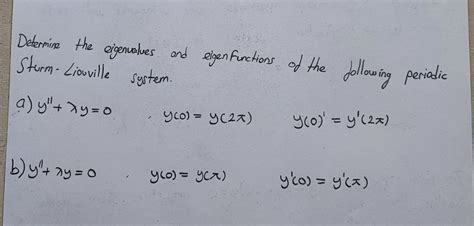 Determine the eigenvalues and eigenfunctions of the following periodic
Sturm-Liouville system.
a) y'' + λy = 0 . y(0) = y(2π) y(0)' = y'(2π)
b) y'' + λy = 0 y(0) = y(π) y'(0) = y'(π)